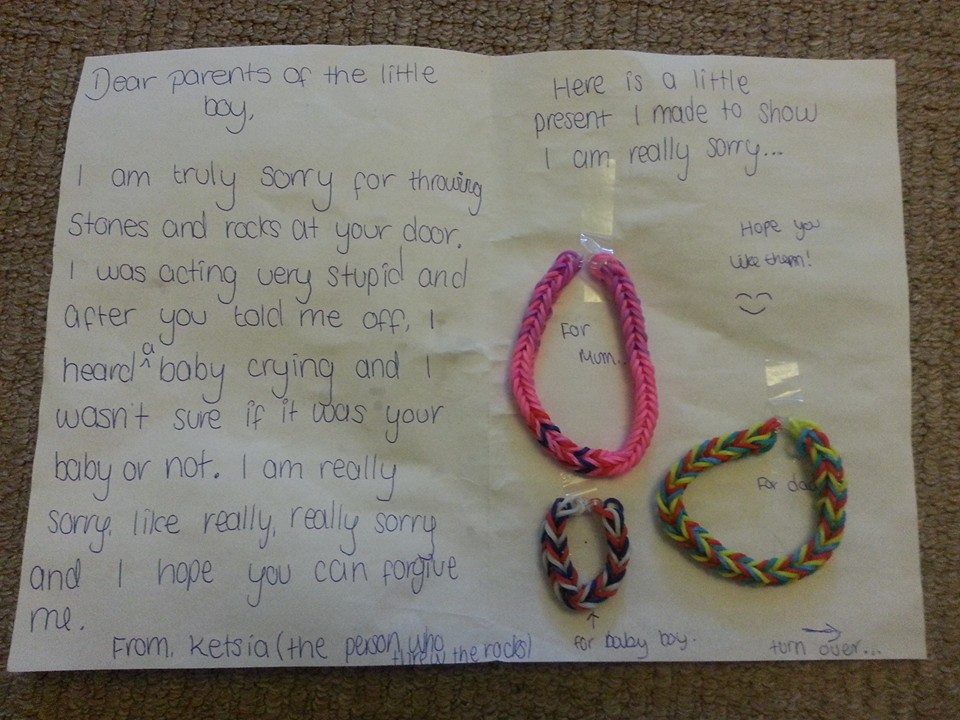 Dear parents of the little
boy,
I am truly sorry for throwing
stones and rocks at your door.
I was acting very stupid and
after you told me off, I
heard a baby crying and I
wasn't sure if it was your
baby or not. I am really
sorry, like really, really sorry
and I hope you can forgive
me.
From, Ketsia (the person who
threw the rocks)
Here is a little
present I made to show
I am really sorry...
Hope you
like them!
For
Mum...
For dad
↑
for baby boy.
→
turn over...